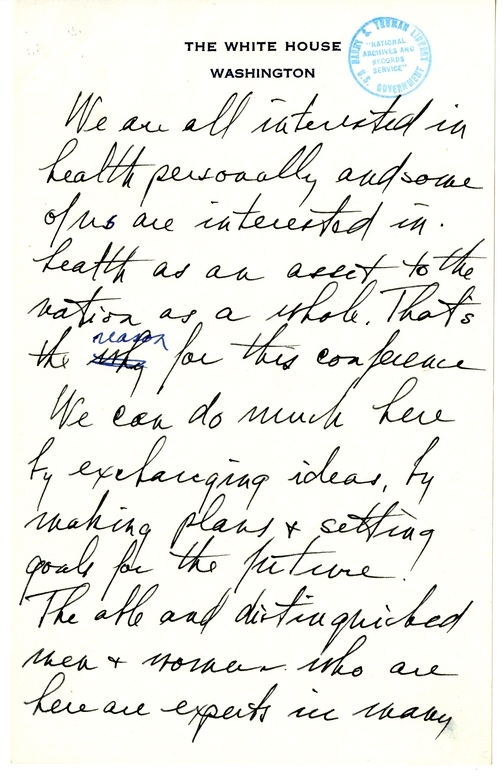 THE WHITE HOUSE
WASHINGTON
HARRY S. TRUMAN LIBRARY
"NATIONAL
ARCHIVES AND
RECORDS
SERVICE"
U.S. GOVERNMENT
We are all interested in
health personally and some
of us are interested in
health as an asset to the
nation as a whole. That's
reason
the why for this conference
We can do much here
by exchanging ideas, by
making plans & setting
goals for the future.
The able and distinguished
men & women who are
here are experts in many